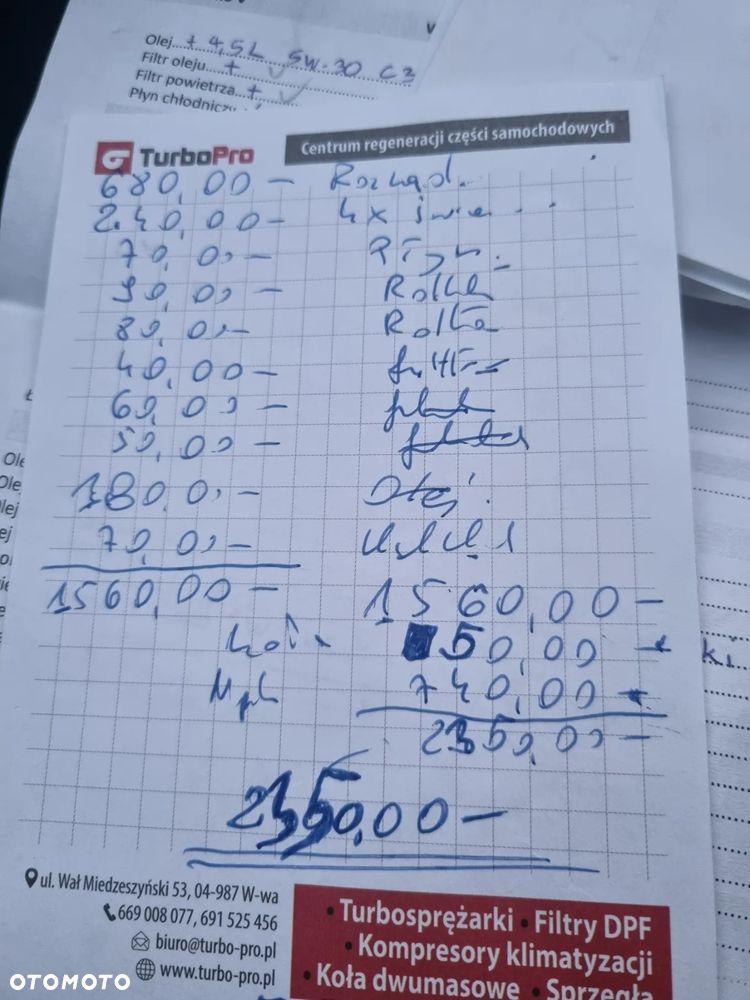 Olej...+ 4,5L 5W-30 C3
Filtr oleju...+
Filtr powietrza...+
Płyn chłodniczy
TurboPro
Centrum regeneracji części samochodowych
680,00 - Rozrząd.
240,00 - 4x świe
70,00 - Płyn.
90,00 - Rolka
80,00 - Rolka
40,00 - filtr
60,00 -
50,00 -
180,00 - Olej.
70,00 -
1560,00 - 1560,00 -
50,00
740,00
2350,00 -
2350,00 -
ul. Wał Miedzeszyński 53, 04-987 W-wa
669 008 077, 691 525 456
biuro@turbo-pro.pl
www.turbo-pro.pl
• Turbosprężarki • Filtry DPF
• Kompresory klimatyzacji
• Koła dwumasowe • Sprzęgła
OTOMOTO